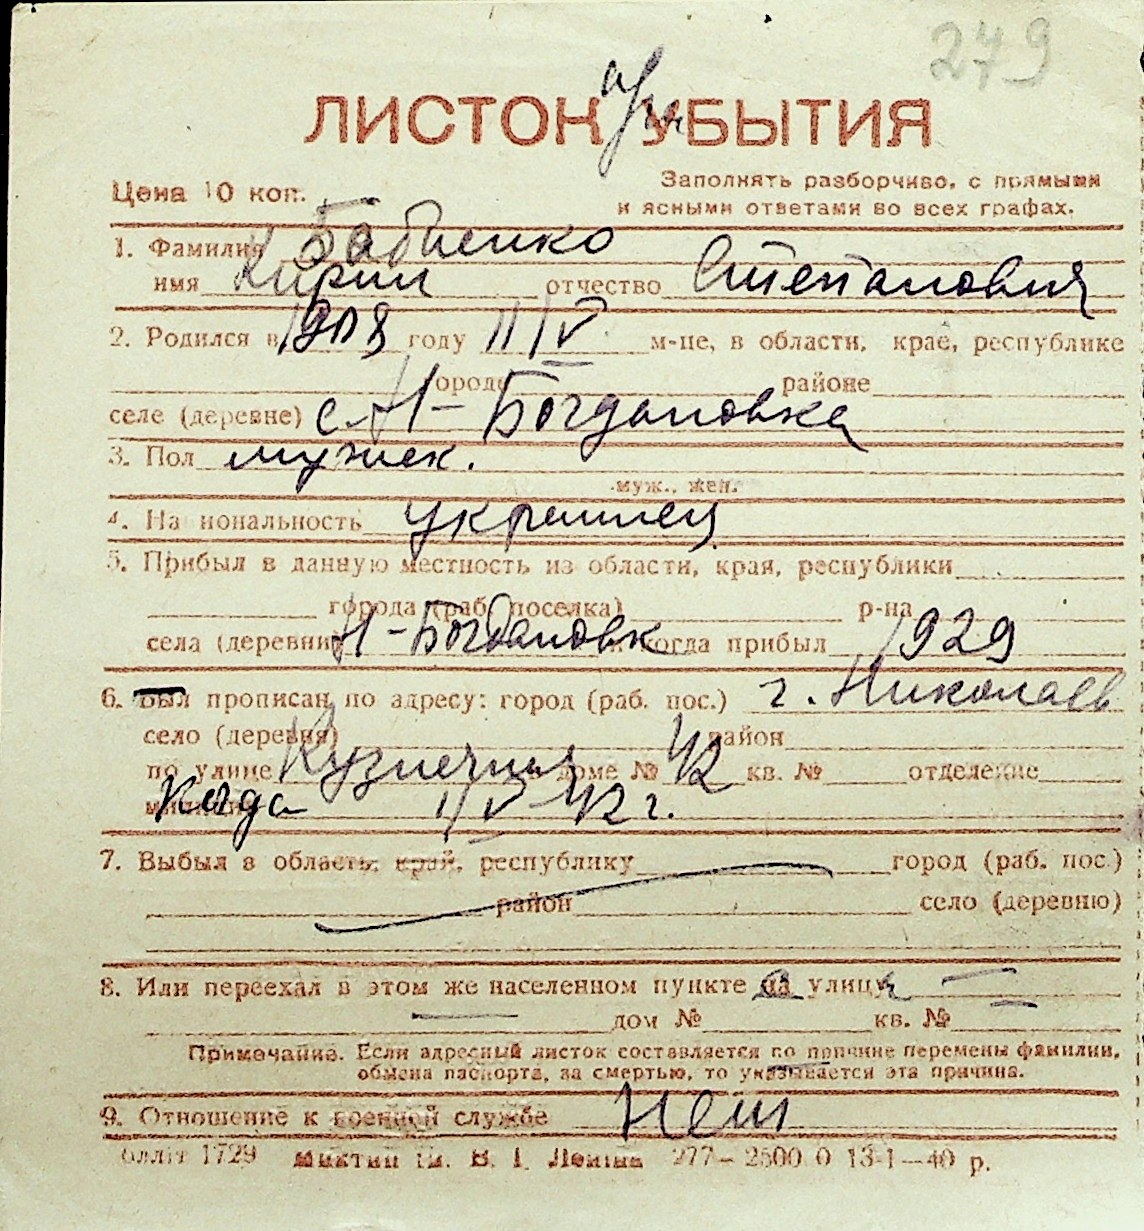 279
ЛИСТОК УБЫТИЯ
Цена 10 коп.
Заполнять разборчиво, с прямыми
и ясными ответами во всех графах.
1. Фамилия Бабиенко
имя Кирил отчество Степанович
2. Родился в 1908 году 11/V м-це, в области, крае, республике
городе районе
селе (деревне) с. Н-Богдановка
3. Пол мужск.
муж., жен.
4. На иональность украинец
5. Прибыл в данную местность из области, края, республики
города (раб. поселка) р-на
села (деревни Н-Богдановк когда прибыл 1929
6. Был прописан по адресу: город (раб. пос.) г. Николаев
село (деревня) район
по улице Кузнечная доме № 42 кв. № отделение
милиции Когда 11/V-42 г.
7. Выбыл в область, край, республику город (раб. пос.)
район село (деревню)
8. Или переехал в этом же населенном пункте на улицу
дом № кв. №
Примечание. Если адресный листок составляется по причине перемены фамилии,
обмена паспорта, за смертью, то указывается эта причина.
9. Отношение к военной службе Нет
1729 ім. В. І. Леніна 277-2500 0 13-1-40 р.